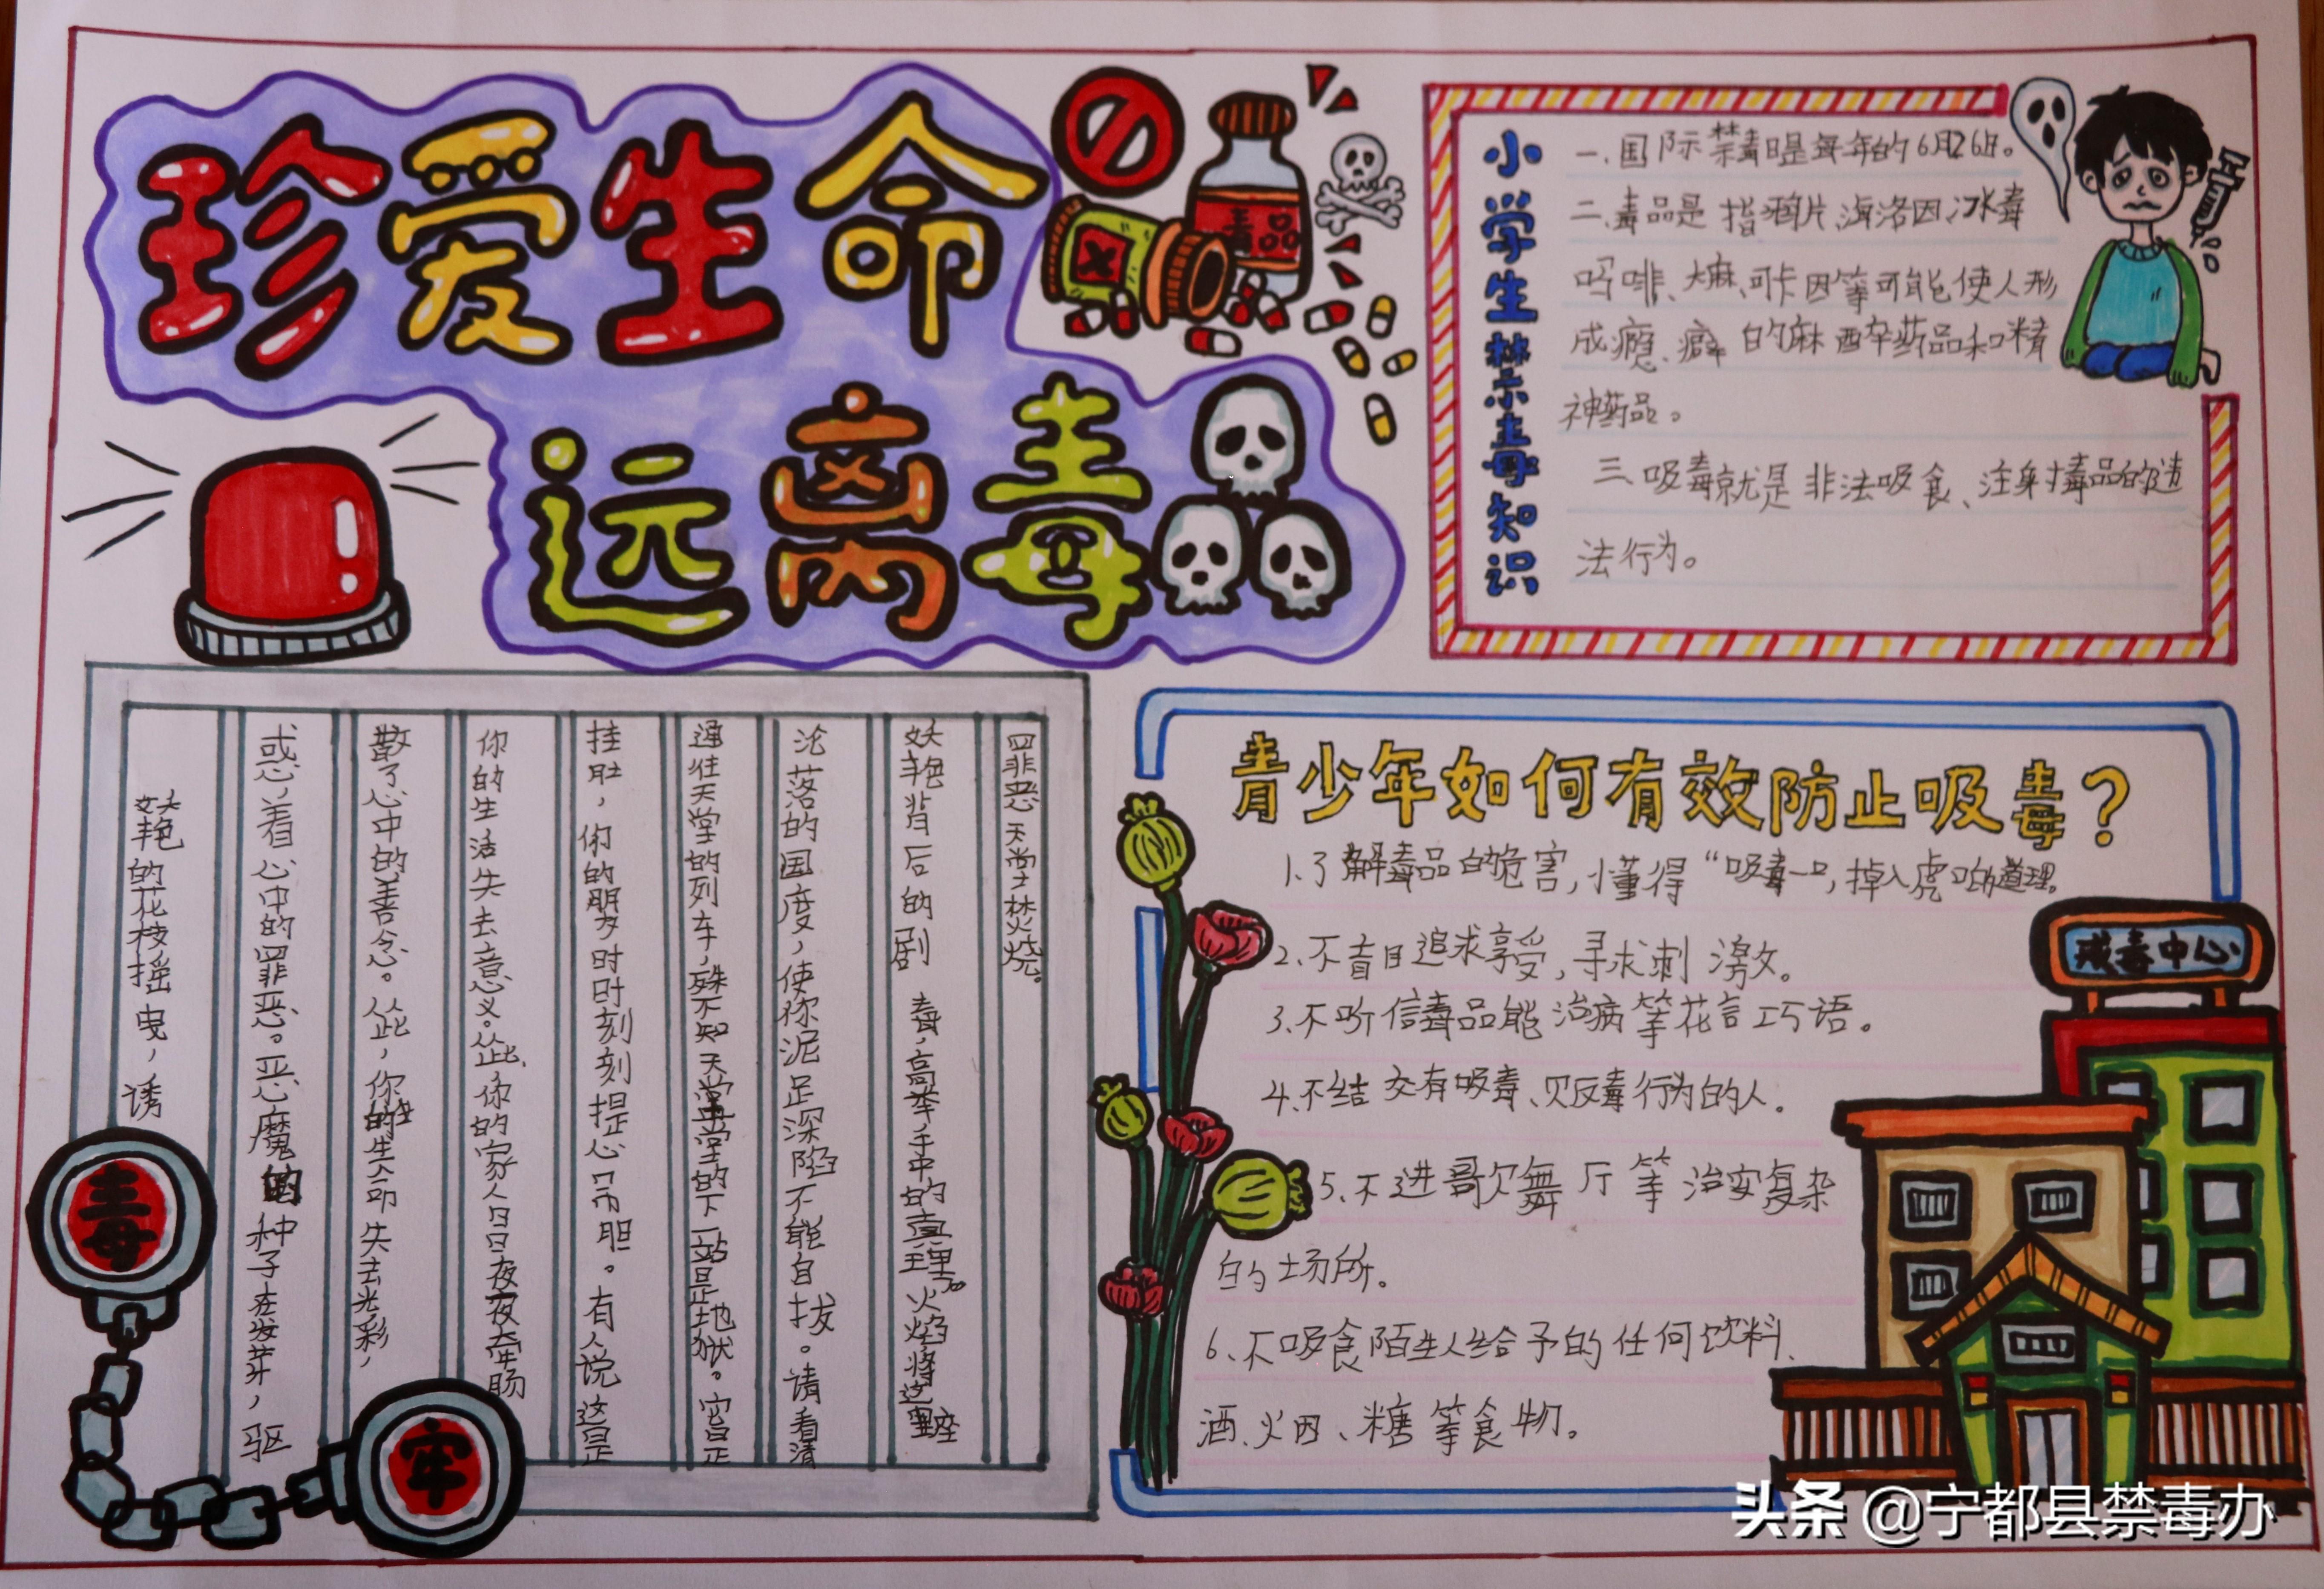 珍爱生命
远离毒
毒品
小学生禁毒知识
一.国际禁毒日是每年的6月26日。
二.毒品是指鸦片、海洛因、冰毒
吗啡、大麻、可卡因等可能使人形
成瘾、癖的麻醉药品和精
神药品。
三.吸毒就是非法吸食、注射毒品的违
法行为。
妖艳的花枝摇曳，诱
惑着心中的罪恶。恶魔的种子在发芽，驱
散了心中的善念。从此，你的生命失去光彩，
你的生活失去意义。从此，你的家人日日夜夜牵肠
挂肚，你的朋友时时刻刻提心吊胆。有人说这是
通往天堂的列车，殊不知天堂的下一站是地狱。它是
沦落的国度，使你泥足深陷不能自拔。请看清
妖艳背后的剧毒，高举手中的真理。火焰将这座
罪恶天堂焚烧。
毒
牢
青少年如何有效防止吸毒？
1.了解毒品的危害，懂得“吸毒一口，掉入虎口的道理。
2.不盲目追求享受，寻求刺激。
3.不听信毒品能治病等花言巧语。
4.不结交有吸毒、贩毒行为的人。
5.不进歌舞厅等治安复杂
的场所。
6.不吸食陌生人给予的任何饮料、
酒、火因、糖等食物。
戒毒中心
头条 @宁都县禁毒办